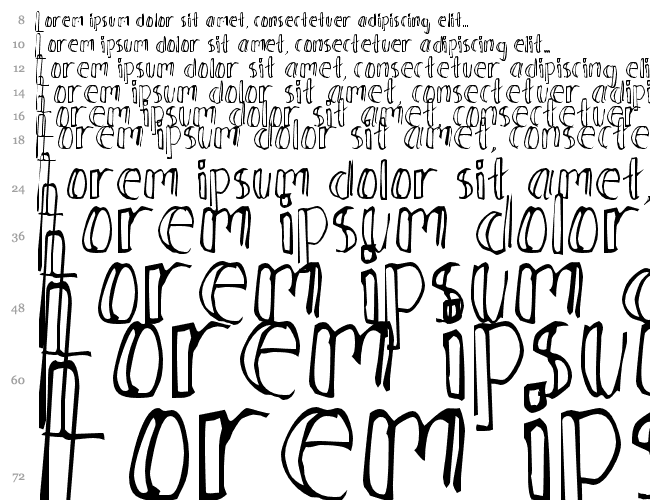 8 Lorem ipsum dolor sit amet, consectetuer adipiscing elit...
10 Lorem ipsum dolor sit amet, consectetuer adipiscing elit...
12 Lorem ipsum dolor sit amet, consectetuer adipiscing eli
14 Lorem ipsum dolor sit amet, consectetuer adipi
16 Lorem ipsum dolor sit amet, consectetuer
18 Lorem ipsum dolor sit amet, consecte
24 Lorem ipsum dolor sit amet,
36 Lorem ipsum dolor
48 Lorem ipsum
60 Lorem ipsu
72 Lorem ips